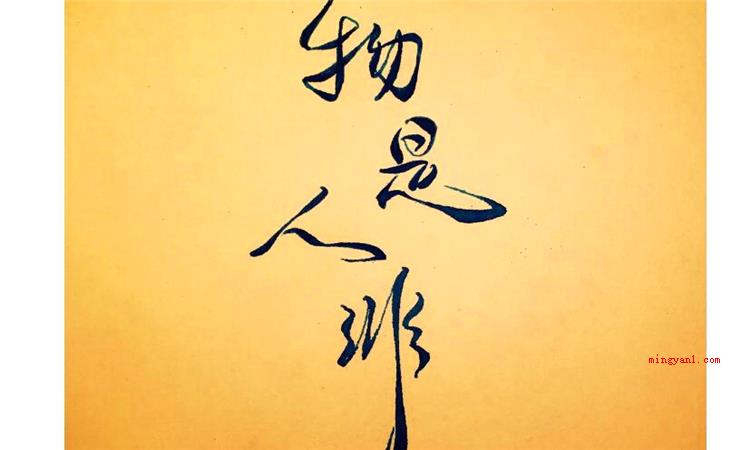 物是
人非
mingyan1.com